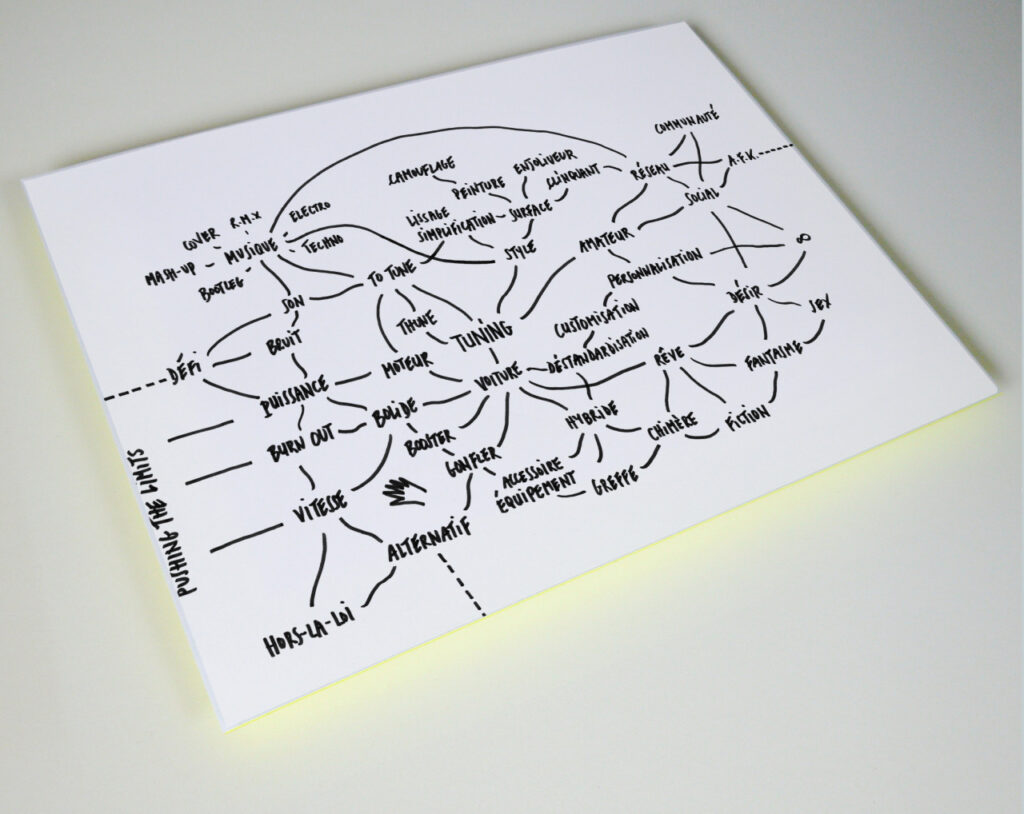 COMMUNAUTÉ
CAMOUFLAGE
ENTOLIVEUR
A.F.K.
PEINTURE
CLINQUANT
RÉSEAU
COVER
R.M.X
ELECTRO
LISSAGE
SIMPLIFICATION
SURFACE
SOCIAL
MASH-UP
MUSIQUE
TECHNO
BOOTLEG
STYLE
AMATEUR
∞
TO TUNE
PERSONNALISATION
SON
DÉSIR
SEX
THUNE
TUNING
CUSTOMISATION
BRUIT
DÉFI
MOTEUR
VOITURE
DÉSTANDARDISATION
RÊVE
FANTAIME
PUISSANCE
BOLIDE
HYBRIDE
CHIMÈRE
FICTION
BURN OUT
BOOSTER
GONFLER
ACCESSOIRE
ÉQUIPEMENT
GREFFE
VITESSE
ALTERNATIF
PUSHING THE LIMITS
HORS-LA-LOI